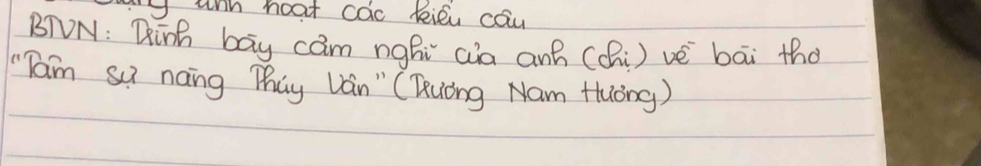 linh hoạt các kiểu câu
BTVN: Trình bày cảm nghĩ của anh (chị) về bài thơ
"Tâm sự nàng Thúy Vân" (Trương Nam Hương)